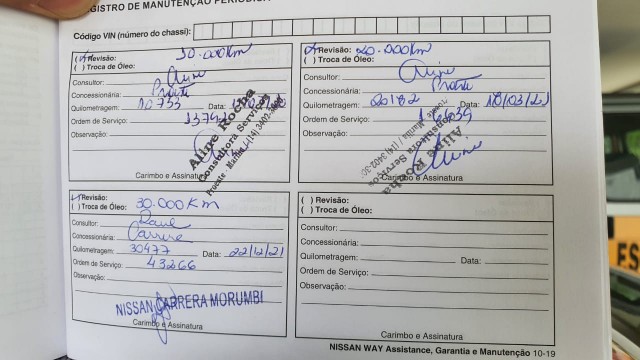 REGISTRO DE MANUTENÇÃO PERIÓDICA
Código VIN (número do chassi):
(✓) Revisão: 10.000Km
( ) Troca de Óleo:
Consultor: Aline
Concessionária:
Quilometragem: 10733 Data:
Ordem de Serviço:
Observação:
Aline Rocha
Consultora Serviços
Carimbo e Assinatura
(✓) Revisão: 20.000Km
( ) Troca de Óleo:
Consultor: Aline
Concessionária:
Quilometragem: 20182 Data: 18/03/21
Ordem de Serviço:
Observação:
Aline Rocha
Consultora Serviços
Aline
Carimbo e Assinatura
(✓) Revisão:
( ) Troca de Óleo: 30.000Km
Consultor:
Concessionária: Carrera
Quilometragem: 30477 Data: 22/12/21
Ordem de Serviço: 43266
Observação:
NISSAN CARRERA MORUMBI
Carimbo e Assinatura
( ) Revisão:
( ) Troca de Óleo:
Consultor:
Concessionária:
Quilometragem: Data:
Ordem de Serviço:
Observação:
Carimbo e Assinatura
NISSAN WAY Assistance, Garantia e Manutenção 10-19
ES